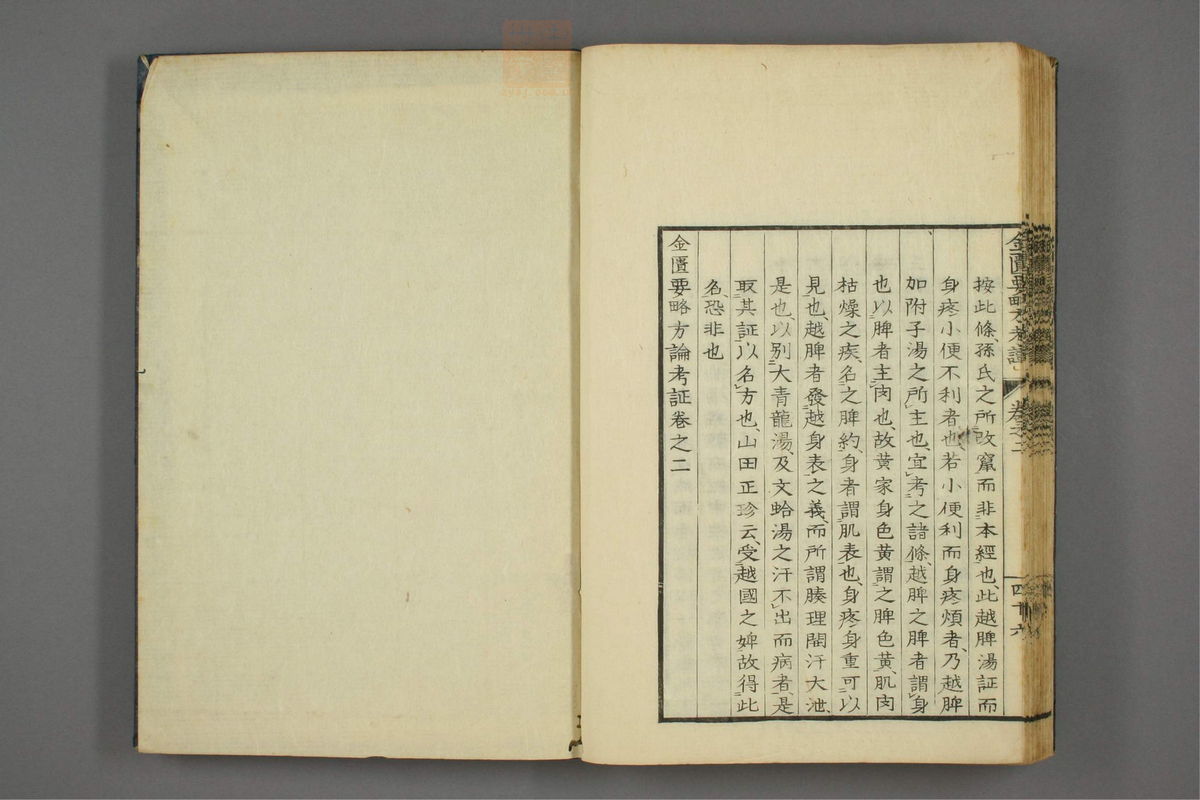 金匱要略方考證
卷之二
四十六
按此條、孫氏之所改竄而非本經也、此越脾湯証而
身疼小便不利者也、若小便利而身疼煩者、乃越脾
加附子湯之所主也、宜考之諸條、越脾之脾者謂身
也以脾者主肉也、故黄家身色黄謂之脾色黄、肌肉
枯燥之疾、名之脾約、身者謂肌表也、身疼身重可以
見也、越脾者發越身表之義、而所謂腠理開汗大泄、
是也、以別大青龍湯、及文蛤湯之汗不出而病者、是
取其証以名方也、山田正珍云、受越國之婢故得此
名、恐非也
金匱要略方論考証卷之二